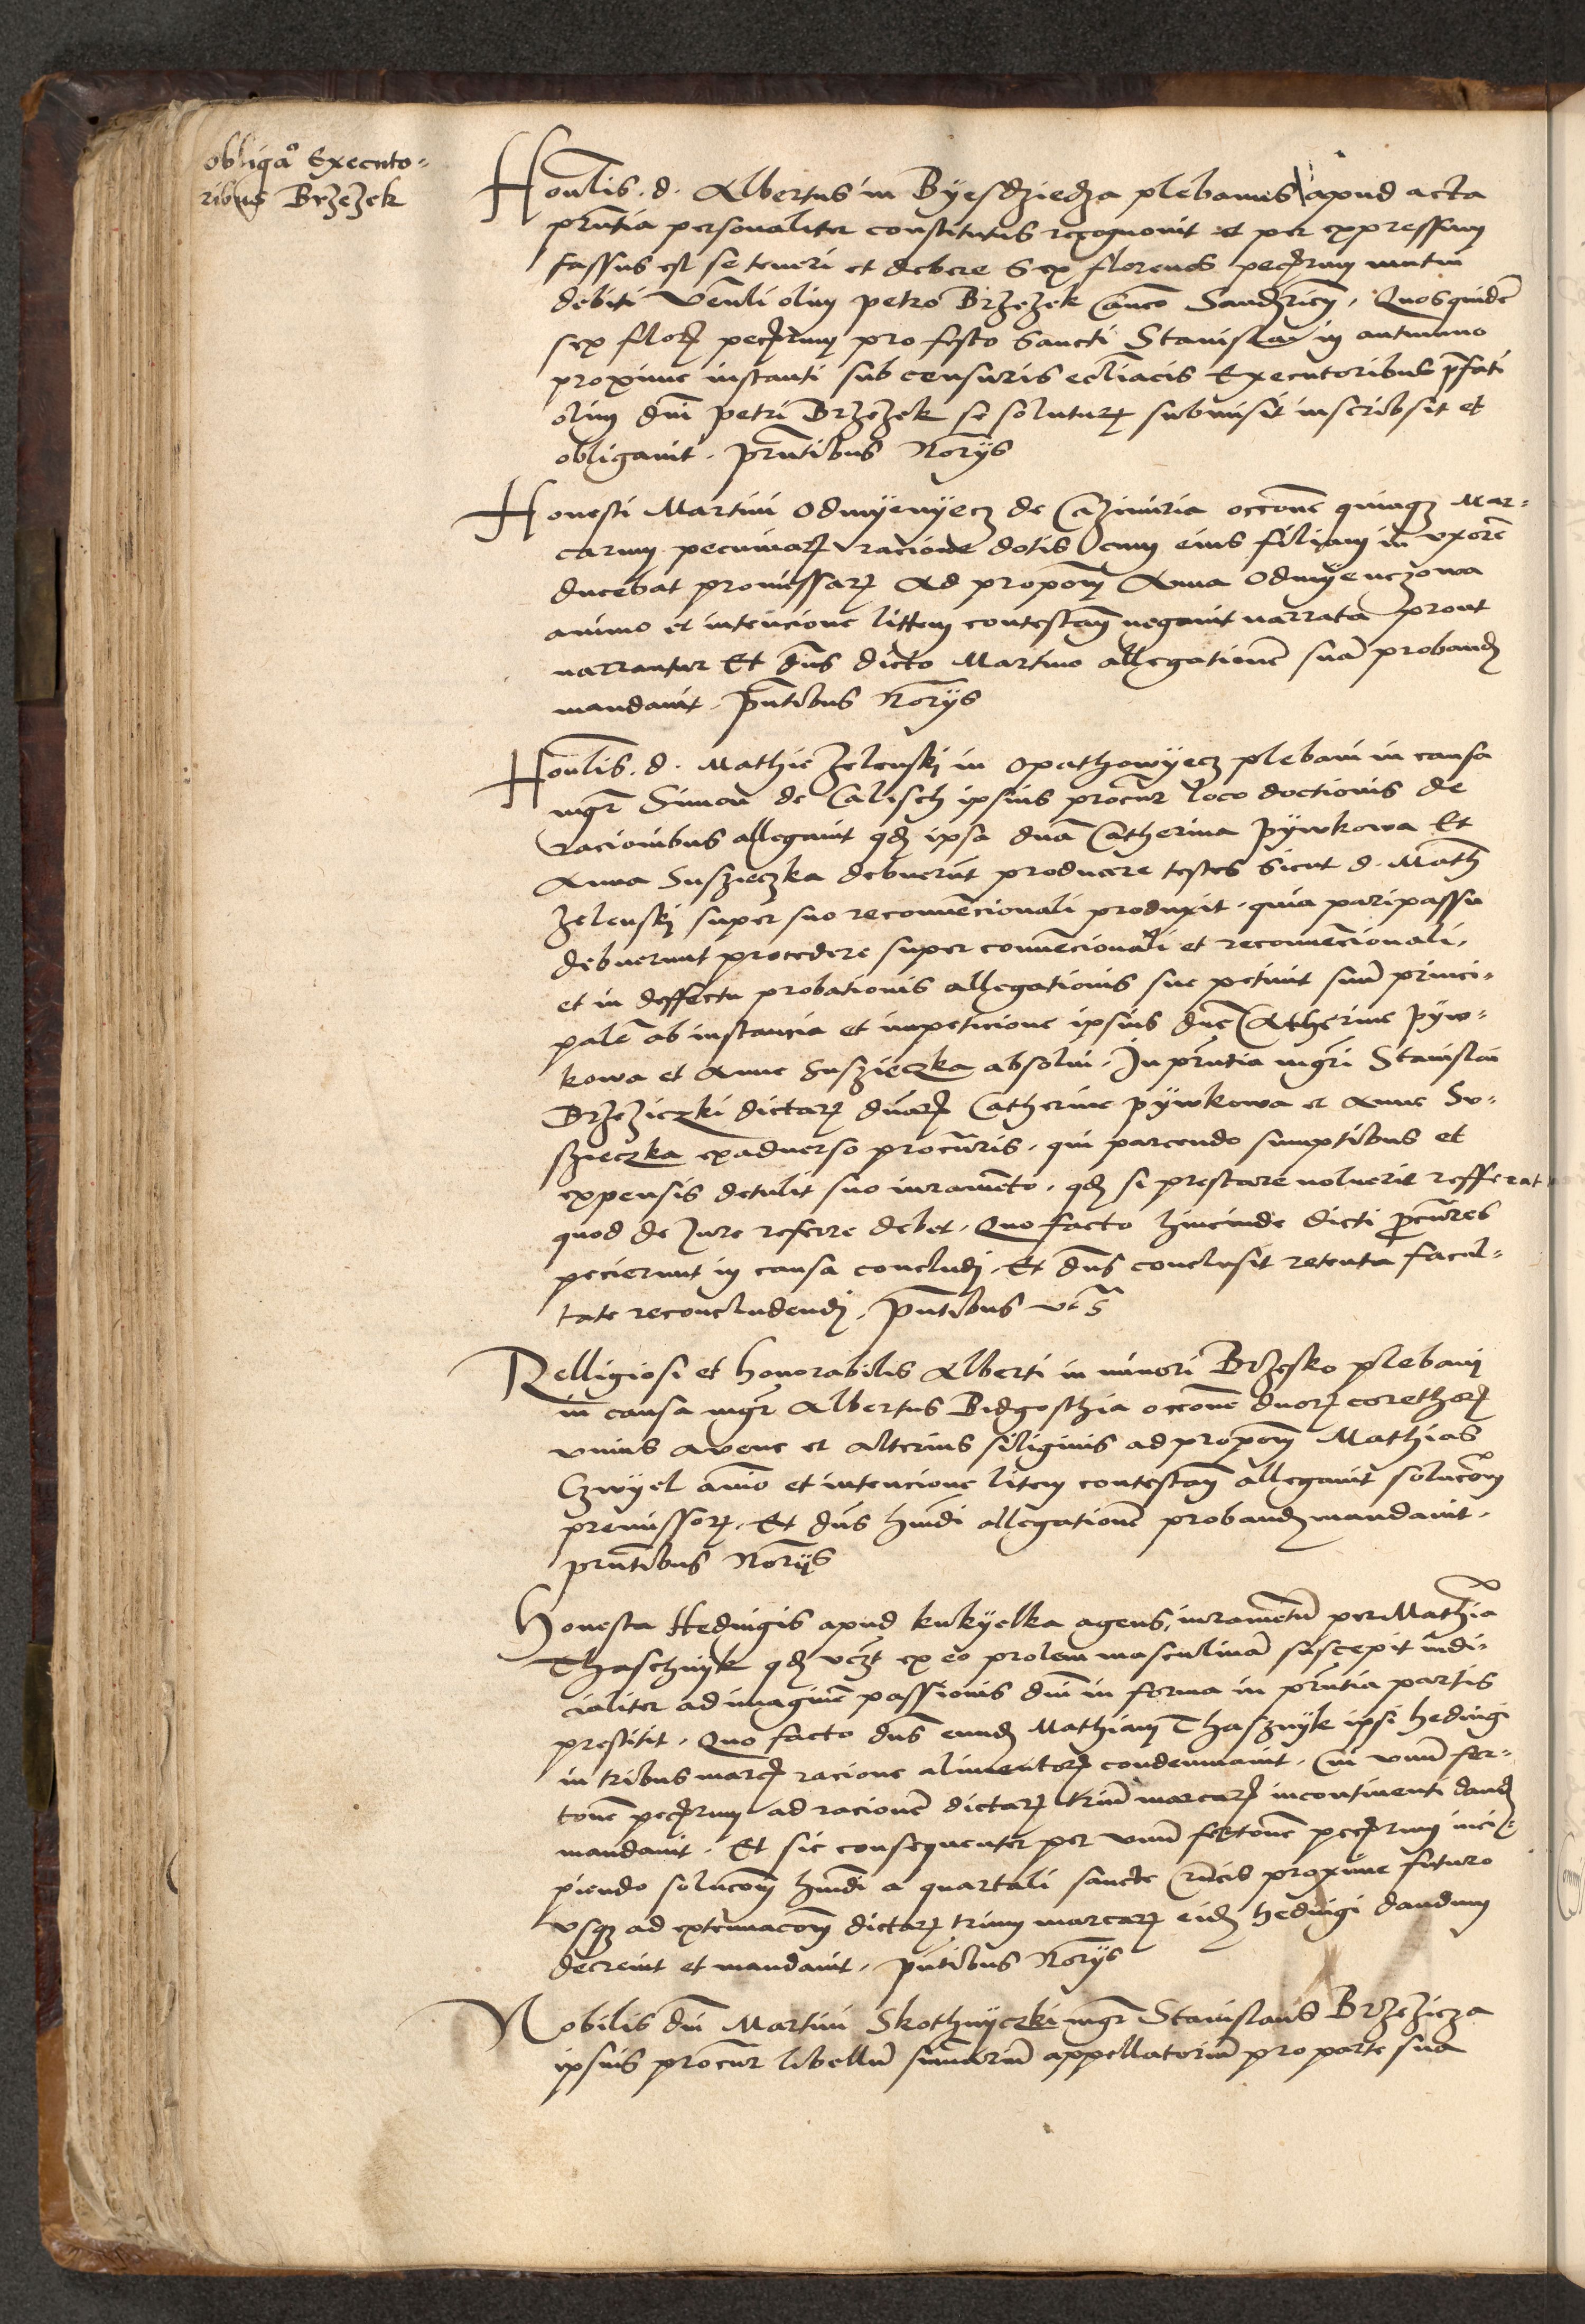 obligaᵒ Executo-
ribus Brzezek
Honlis. d. Albertus in Byesdziedza plebanus apud acta
pñtia personaliter constitutus recognouit et per expressum
fassus est se teneri et debere Sex florenos pecuniarum mutui
debiti Venli olim petro Brzezek Canco Sandzricen. Quosquidem
sex floꝝ pecuniarum pro festo Sancti Stanislai in autumno
proxime instanti sub censuris ecliacis Executoribus pfati
olim dni petri Brzezek se soluturꝝ submisit inscribsit et
obligauit. pñtibus Norijs
Honesti Martini Odmyenyecz de Cazimiria occone quinqʒ Mar-
carum pecuniarꝝ racione dotis cum eius filiam in vxore
ducebat promissarꝝ Ad propom Anna Odmyenczowa
animo et intencione littem contestan negauit narrata prout
narrantur Et dns dicto Martino allegatione sua proband
mandauit. pñtibus Norijs
Honlis. d. Mathie Zelenskj in Opathowyecz plebani in causa
mgr Simon de Calisch ipsius procur loco doctionis de
racionibus allegauit qd ipsa dna Catherina Pywkowa Et
Anna Suszieczka debuerut producere testes sicut d. Math
Zelenskj super suo reconuencionali produxit. quia paripassu
debuerunt procedere super conuencionali et reconuencionali.
et in deffectu probationis allegationis sue petiuit suu princi-
pale ab instancia et impeticione ipsius dne Catherine Pyw-
kowa et Anne Suszieczka absolui. In pñtia mgri Stanislai
Brzeziczki dictarꝝ dnarꝝ Catherine pywkowa et Anne Su-
szieczka exaduerso procuris. qui parcendo sumptibus et
expensis detulit suo iuramento. qd si prestare noluerit refferat
quod de Iure referre debet. Quo facto hincinde dicti pcures
pecierunt in causa concludj. Et dns conclusit retenta facul-
tate reconcludendj. pñtibus vt s
Relligiosi et honorabilis Alberti in minori Brzesko plebanj
in causa mgr Albertus Bidgosthia occone duorꝝ corethorꝝ
vnius auene et alterius siliginis ad propom Mathias
Czwyel aio et intencione litem contestan allegauit solucom
premissorꝝ. Et dns hmdi allegatione proband mandauit.
pñtibus Norijs
Honesta Heduigis apud kukyelka agens, iuramentu per Mathia
Thaschnyk qd vczt ex eo prolem masculina suscepit iudi-
cialiter ad imagine passionis dni in forma in pñtia partis
prestitit. Quo facto dns eund Mathiam Thasznyk ipsi heduigi
in tribus marcꝭ racione alimentorꝝ condemnauit. Cui vnu fer-
tone pecuniarum ad racione dictarꝝ triu marcarꝝ incontinenti dand
mandauit. Et sic consequenter per vnu fertone pecuniarum inci-
piendo solucom hmdi a quartali sancte Crucis proxime futuro
vsqʒ ad extenuacom dictarꝝ trium marcarꝝ eid heduigi dandum
decreuit et mandauit. pñtibus Norijs
Nobilis dni Martini Skothnyczki mgr Stanislaus Brzezicza
ipsius procur libellu sumariu appellatoriu pro parte sua